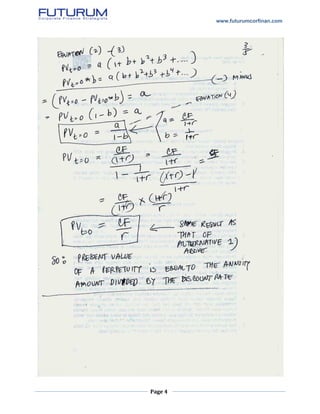 FUTURUM
Corporate Finance Strategists
www.futurumcorfinan.com
3/3
EQUATION (2) - (3)
PV t=0 = a (1 + b + b² + b³ + ....)
PV t=0 * b = a (b + b² + b³ + b⁴ + ...)
(-) MINUS
= (PV t=0 - PV t=0 * b) = a
= PV t=0 (1 - b) = a
EQUATION (4)
PV t=0 = a / 1-b
a = CF / 1+r
b = 1 / 1+r
PV t=0 = CF / (1+r) / 1 - 1 / 1+r = CF / 1+r / (1+r) - 1 / 1+r =
= CF / (1+r) × (1+r) / r
PV t=0 = CF / r
SAME RESULT AS
THAT OF
ALTERNATIVE 1)
ABOVE
SO: PRESENT VALUE
OF A PERPETUITY IS EQUAL TO THE ANNUITY
AMOUNT DIVIDED BY THE DISCOUNT RATE
Page 4